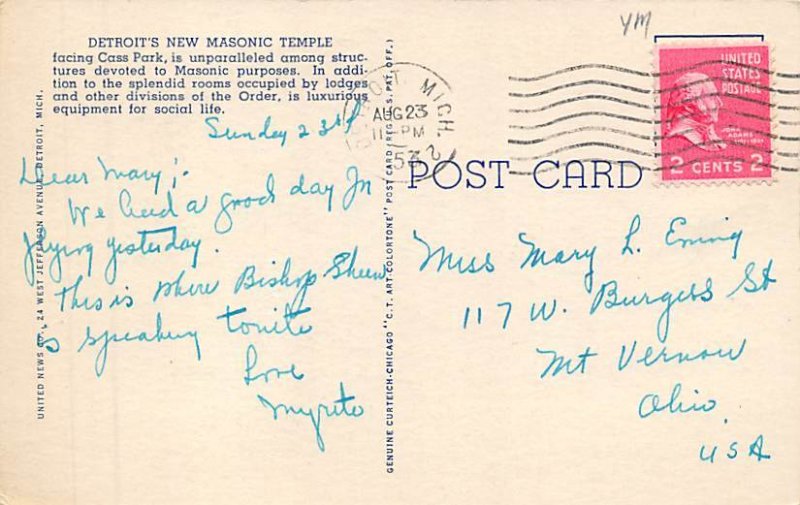 DETROIT'S NEW MASONIC TEMPLE
facing Cass Park, is unparalleled among struc-
tures devoted to Masonic purposes. In addi-
tion to the splendid rooms occupied by lodges
and other divisions of the Order, is luxurious
equipment for social life.
Sunday 23rd
Dear Mary;-
We had a good day In
flying yesterday.
This is where Bishop Sheen
is speaking tonite
Love
UNITED NEWS CO., 24 WEST JEFFERSON AVENUE, DETROIT, MICH.
GENUINE CURTEICH-CHICAGO "C.T. ART-COLORTONE" POST CARD (REG. U.S. PAT. OFF.)
YM
DETROIT, MICH.
AUG 23
11 - PM
1953
UNITED
STATES
POSTAGE
JOHN
ADAMS
2 CENTS 2
POST CARD
Miss Mary L.
117 W. Burgess St
Mt Vernon
Ohio
USA